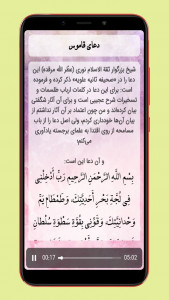 دعای قاموس
شیخ بزرگوار ثقة الاسلام نوری (عطر الله مرقده) این
دعا را در «صحیفه ثانیه علویه» ذکر کرده و فرموده
است: برای این دعا در کلمات ارباب طلسمات و
تسخیرات شرح عجیبی است و برای آن آثار شگفتی
بیان کرده‌اند و من چون اعتماد بر آن آثار نداشتم از
بیان آن‌ها خودداری کردم، ولی اصل دعا را از باب
مسامحه از روی اقتدا به علمای برجسته یادآوری
می‌کنم
و آن دعا این است:
بِسْمِ اللَّهِ الرَّحْمَنِ الرَّحِيمِ رَبِّ أَدْخِلْنِي
فِي لُجَّةِ بَحْرِ أَحَدِيَّتِكَ، وَ طَمْطَامِ يَمِّ
وَحْدَانِيَّتِكَ، وَ قَوِّنِي بِقُوَّةِ سَطْوَةِ سُلْطَانِ
00:17
05:02